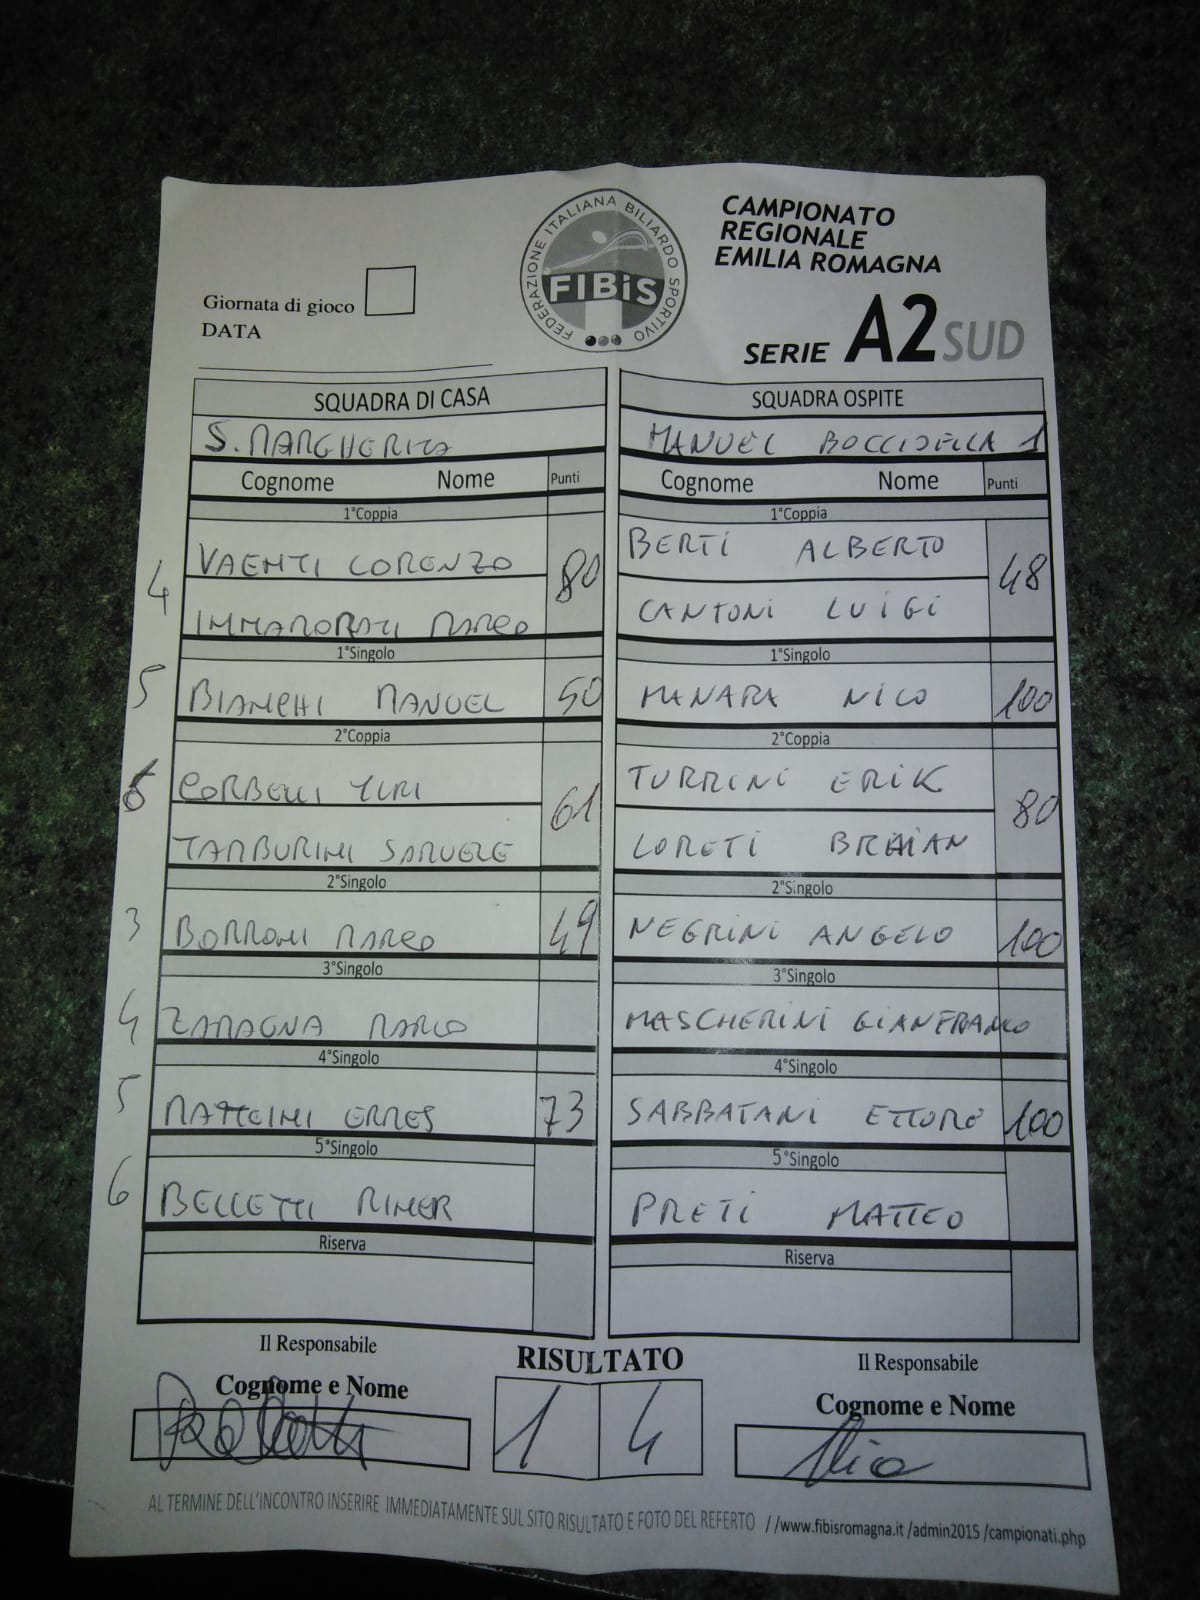 FEDERAZIONE ITALIANA BILIARDO SPORTIVO
FIBiS
CAMPIONATO
REGIONALE
EMILIA ROMAGNA
SERIE A2 SUD
Giornata di gioco
DATA
SQUADRA DI CASA SQUADRA OSPITE
S. MARGHERITA MANUEL BOCCIDELLA 1
Cognome Nome Punti Cognome Nome Punti
1°Coppia 1°Coppia
VAENTI LORENZO BERTI ALBERTO
4 80 48
IMMARORATI MARCO CANTONI LUIGI
1°Singolo 1°Singolo
5 BIANCHI MANUEL 50 MANARA NICO 100
2°Coppia 2°Coppia
6 CORBELLI YURI TURRINI ERIK
61 80
TAMBURINI SAMUELE LORETI BRAIAN
2°Singolo 2°Singolo
3 BORRONI MARCO 49 NEGRINI ANGELO 100
3°Singolo 3°Singolo
4 ZAMAGNA MARCO MASCHERINI GIANFRANCO
4°Singolo 4°Singolo
5 MATTEINI ERMES 73 SABBATANI ETTORE 100
5°Singolo 5°Singolo
6 BELLETTI RIMER PRETI MATTEO
Riserva Riserva
Il Responsabile RISULTATO Il Responsabile
Cognome e Nome Cognome e Nome
1 4 Nico
AL TERMINE DELL'INCONTRO INSERIRE IMMEDIATAMENTE SUL SITO RISULTATO E FOTO DEL REFERTO //www.fibisromagna.it /admin2015 /campionati.php